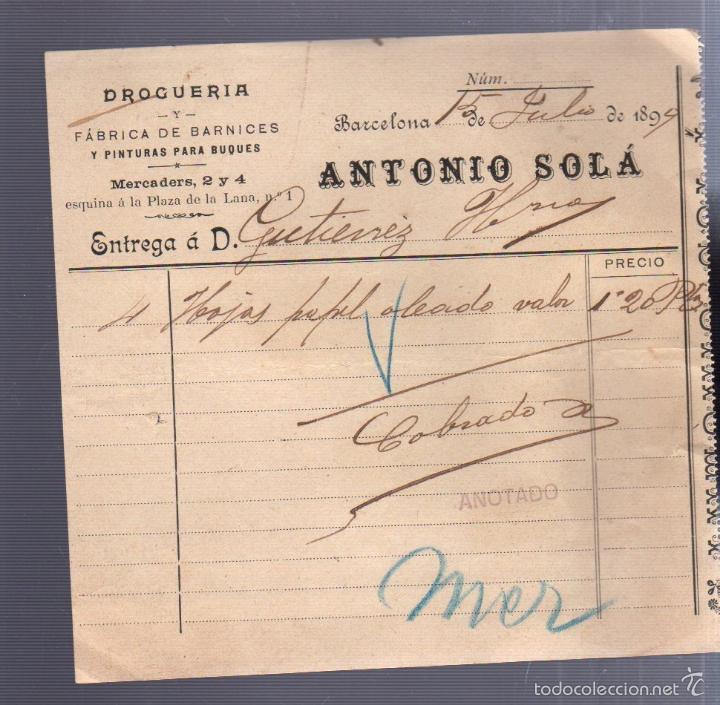 DROGUERIA
- Y -
FÁBRICA DE BARNICES
Y PINTURAS PARA BUQUES
Mercaders, 2 y 4
esquina á la Plaza de la Lana, n.º 1
Núm.
Barcelona 15 de Julio de 1899
ANTONIO SOLÁ
Entrega á D. Gutierrez Hnos
PRECIO
4 Hojas papel oleado valor 1'20 Pts
Cobrado
ANOTADO
Mer
todocoleccion.net